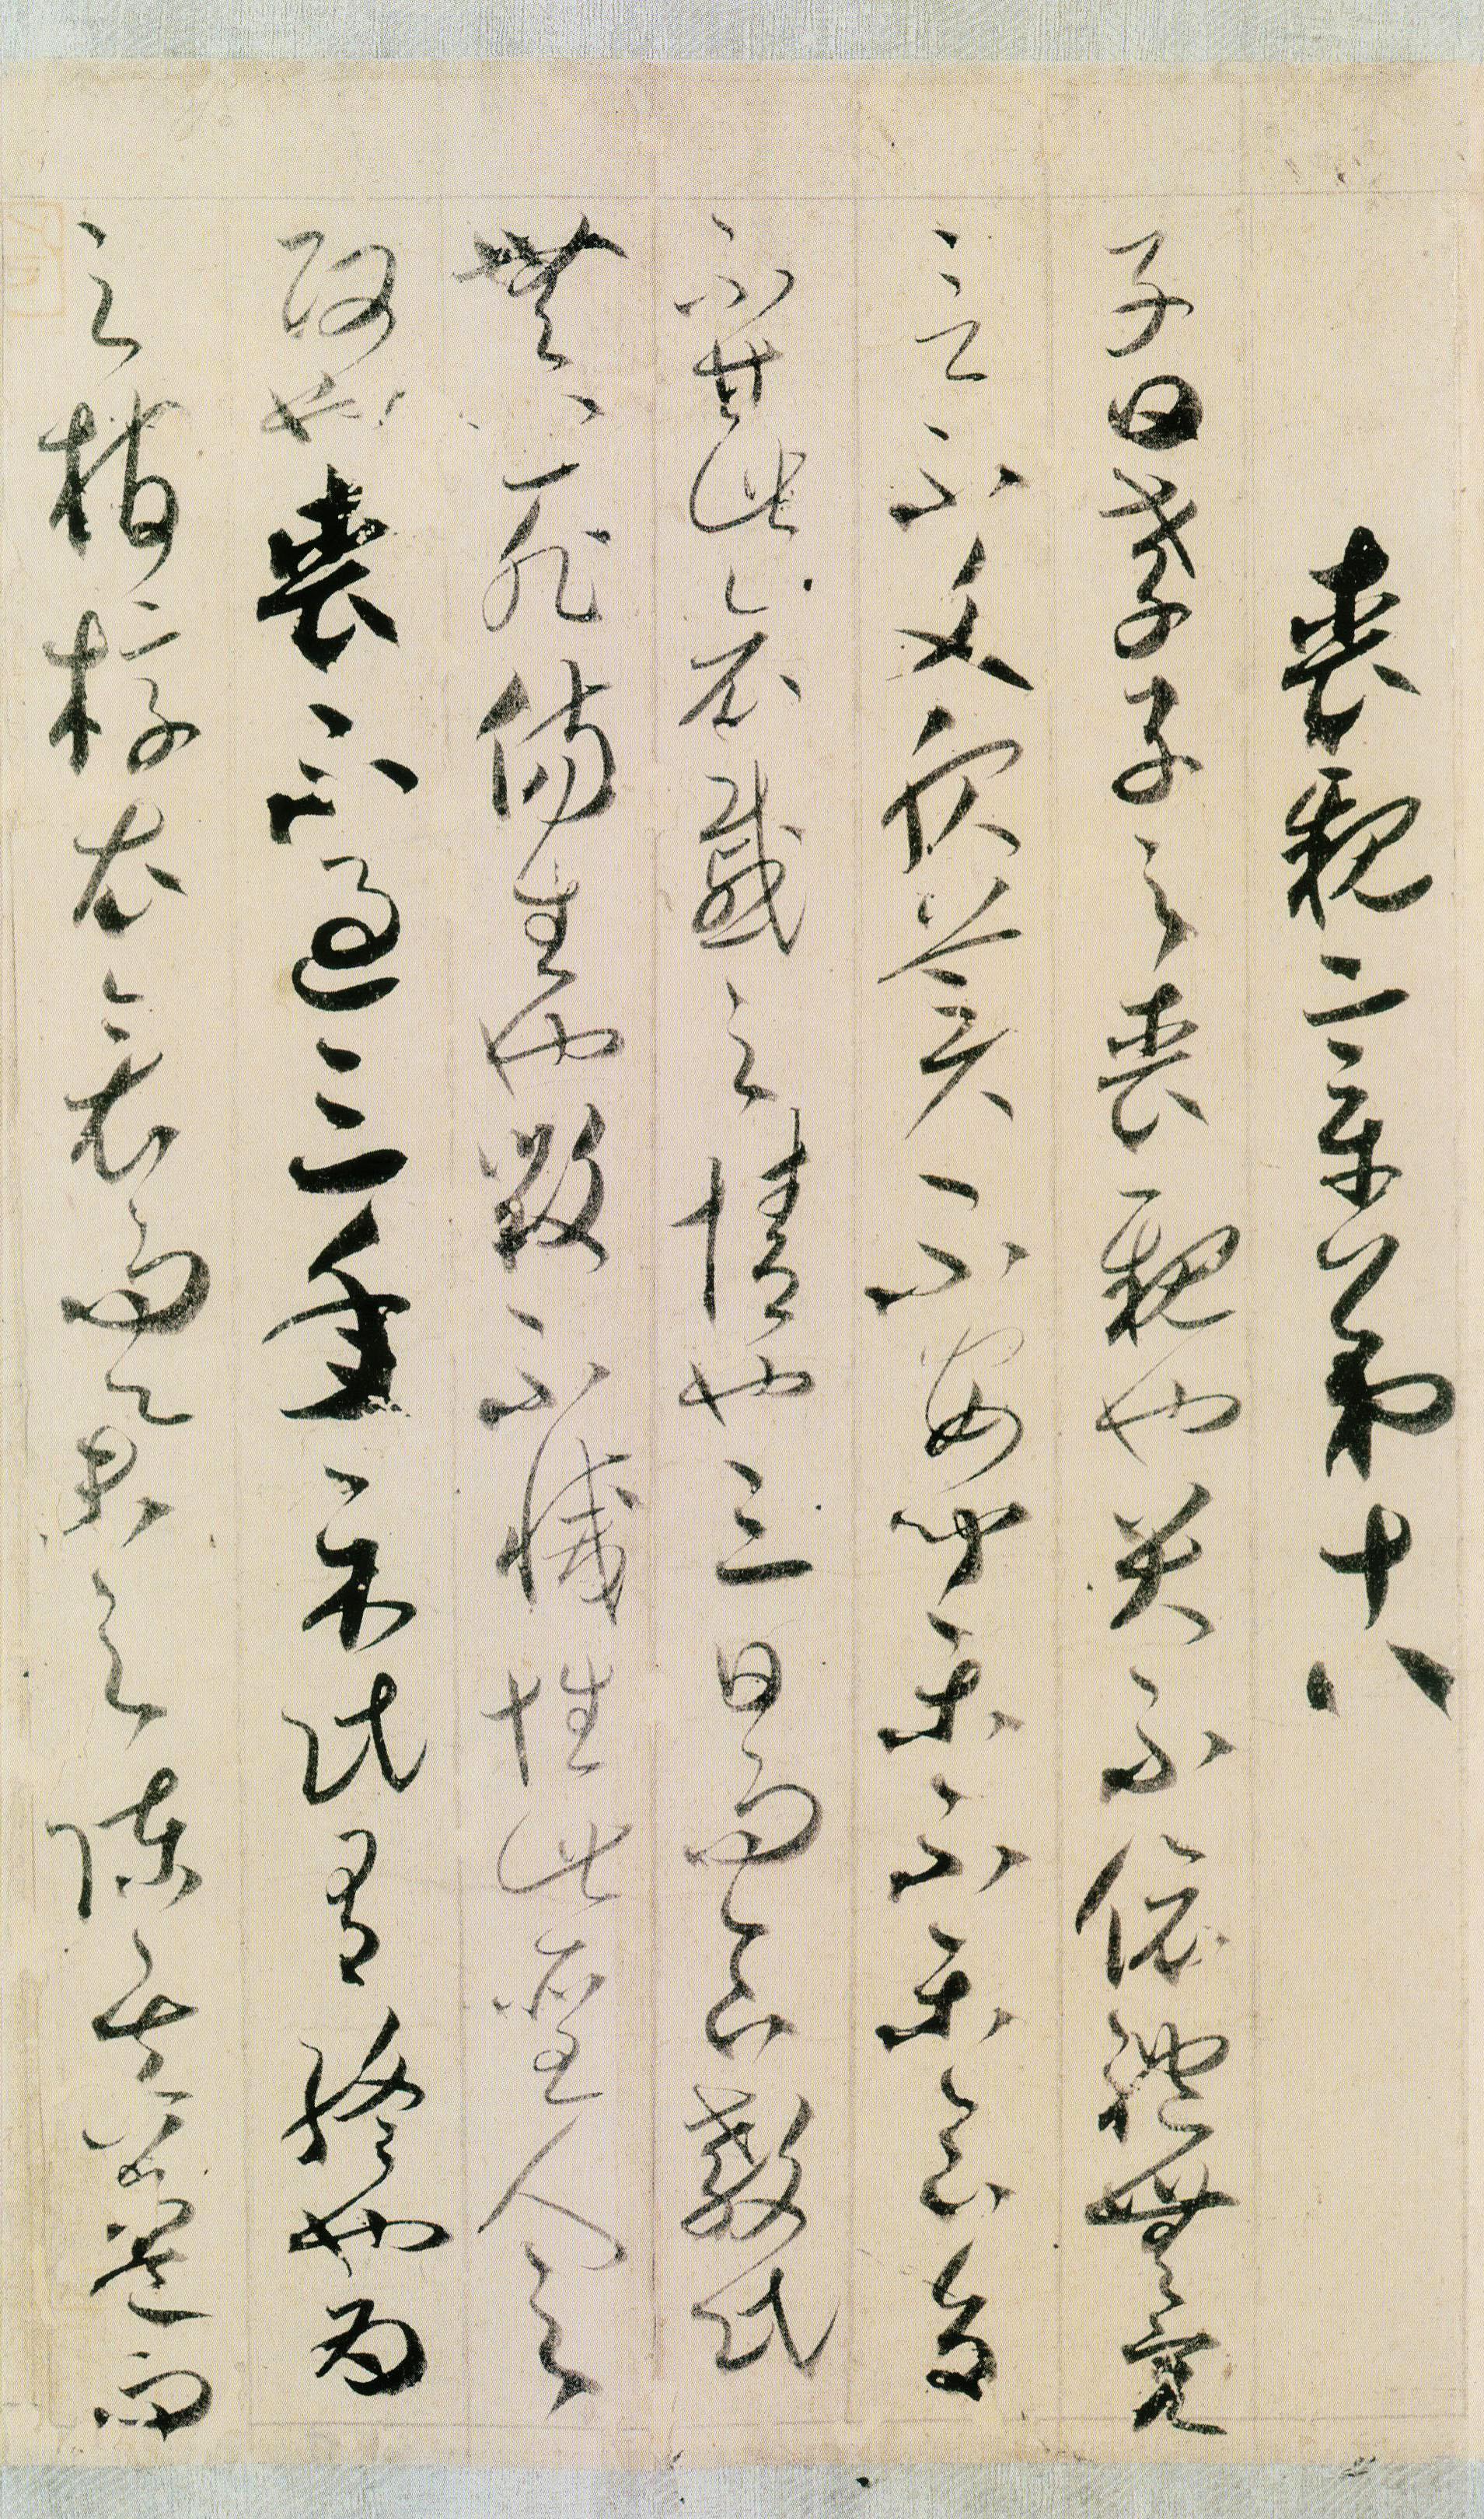 喪親章第十八
子曰孝子之喪親也哭不偯禮無容
言不文服美不安聞樂不樂食旨
不甘此哀慼之情也三日而食教民
無以死傷生也毀不滅性此聖人之
政也喪不過三年示民有終也為
之棺椁衣衾而舉之陳其簠簋而